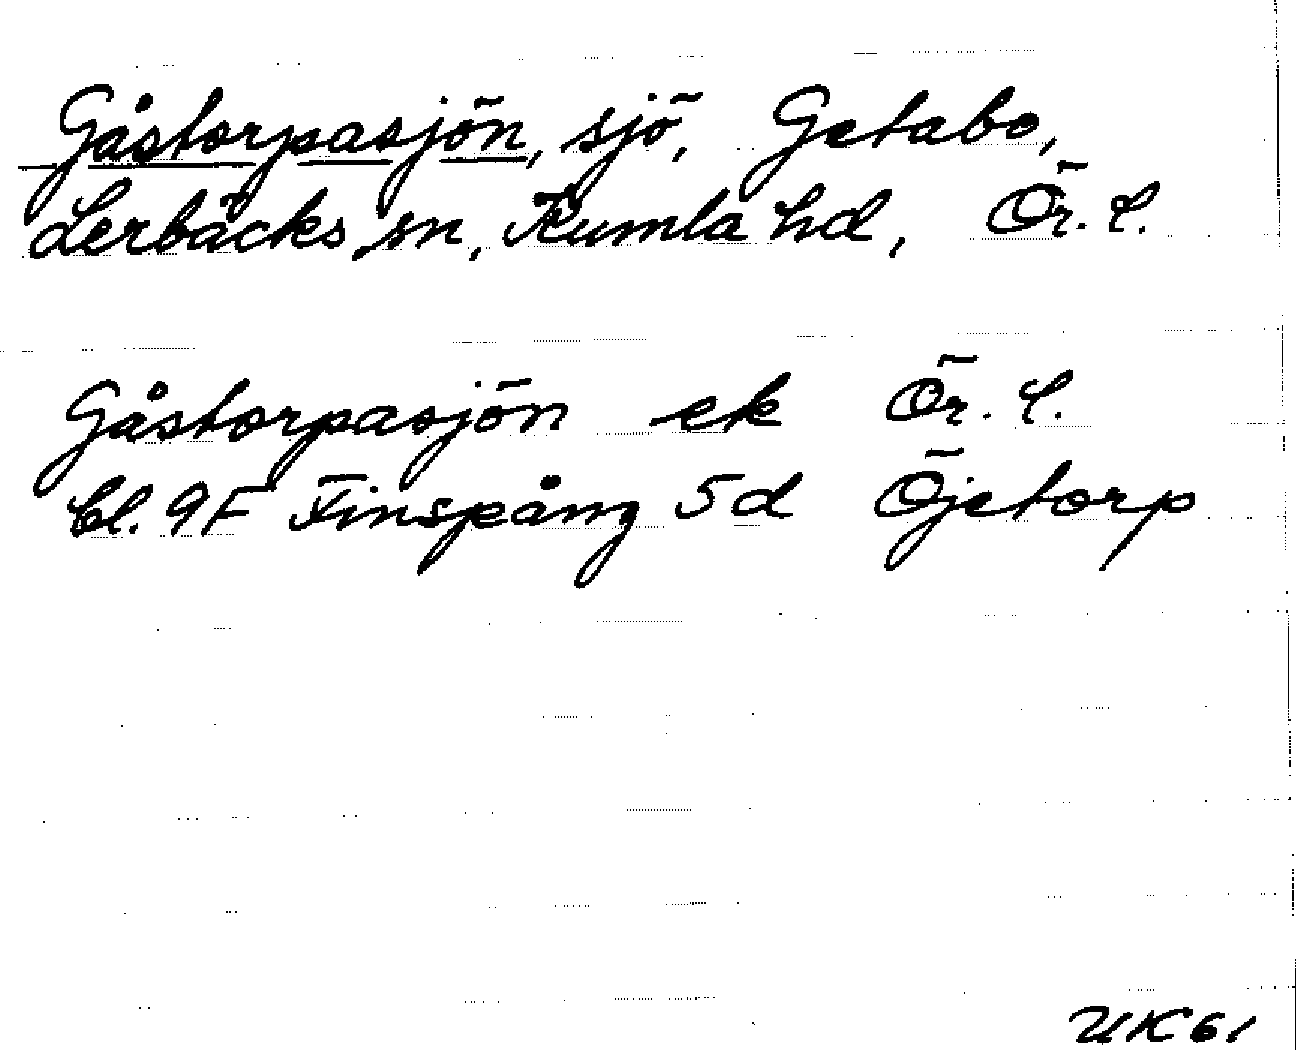 Gåstorpasjön, sjö, Getabo,
Lerbäcks sn, Kumla hd, Ör. l.
Gåstorpasjön ek Ör. l.
bl. 9F Finspång 5d Öjetorp
UK61